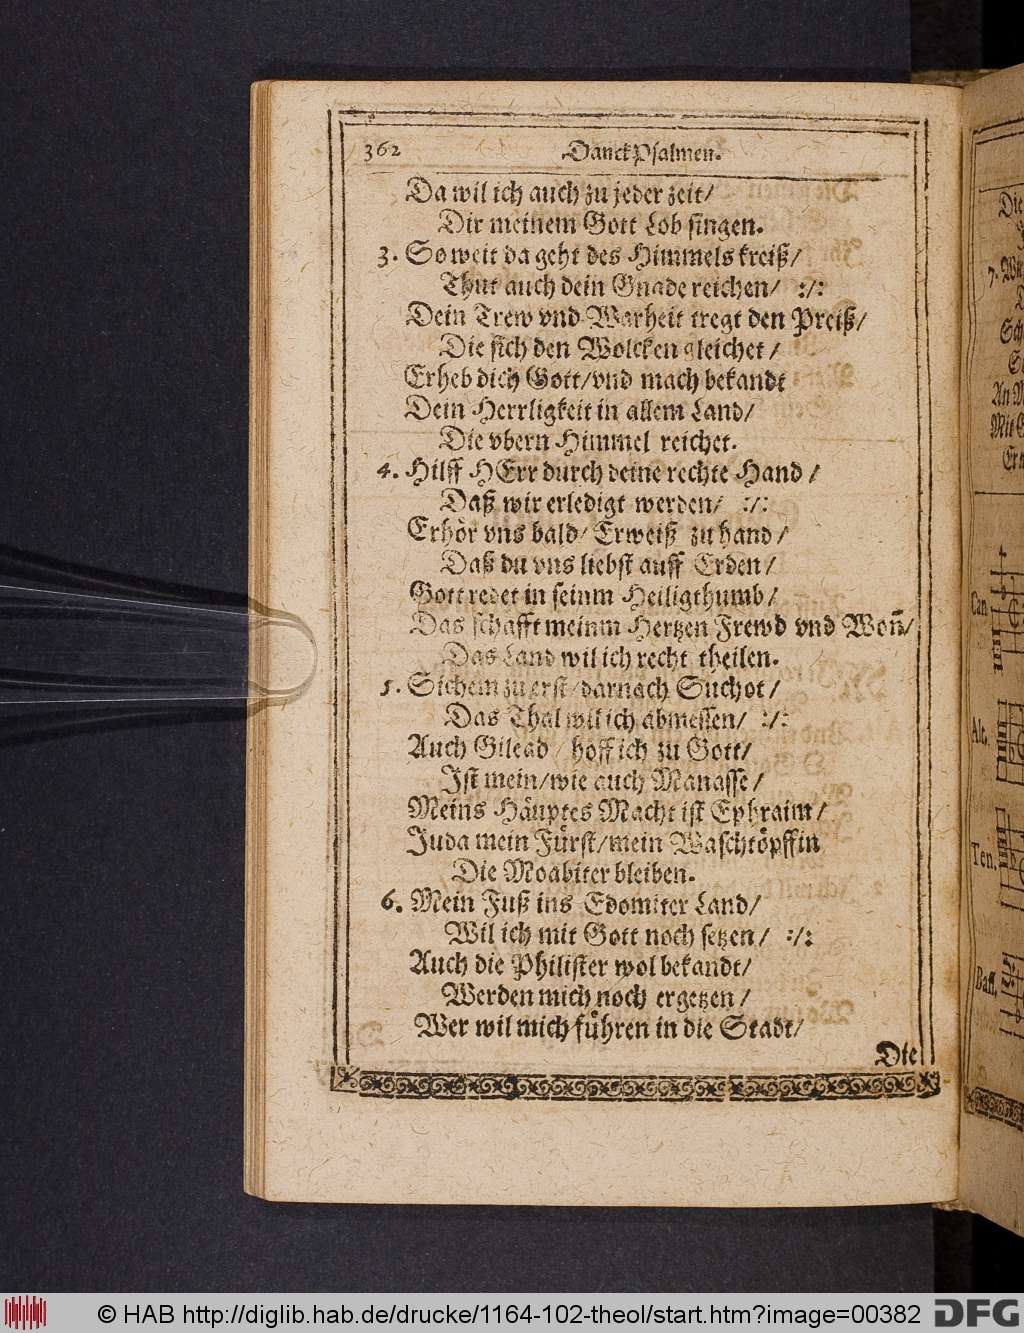 362 DanckPsalmen.
Da wil ich auch zu jeder zeit/
Dir meinem Gott Lob singen.
3. So weit da geht des Himmels kreiß/
Thut auch dein Gnade reichen/ :/:
Dein Trew vnd Warheit tregt den Preiß/
Die sich den Wolcken gleichet/
Erheb dich Gott/vnd mach bekandt
Dein Herrligkeit in allem Land/
Die vbern Himmel reichet.
4. Hilff HErr durch deine rechte Hand/
Daß wir erledigt werden/ :/:
Erhör vns bald/ Erweiß zu hand/
Daß du vns liebst auff Erden/
Gott redet in seinm Heiligthumb/
Das schafft meinm Hertzen Frewd vnd Woñ/
Das Land wil ich recht theilen.
5. Sichem zu erst/darnach Suchot/
Das Thal wil ich abmessen/ :/:
Auch Gilead/ hoff ich zu Gott/
Ist mein/wie auch Manasse/
Meins Häuptes Macht ist Ephraim/
Juda mein Fürst/mein Waschtöpffin
Die Moabiter bleiben.
6. Mein Fuß ins Edomiter Land/
Wil ich mit Gott noch setzen/ :/:
Auch die Philister wol bekandt/
Werden mich noch ergetzen/
Wer wil mich führen in die Stadt/
Die
Die
7.
An
Mit
Can.
Alt.
Ten.
Bass.
© HAB http://diglib.hab.de/drucke/1164-102-theol/start.htm?image=00382
DFG